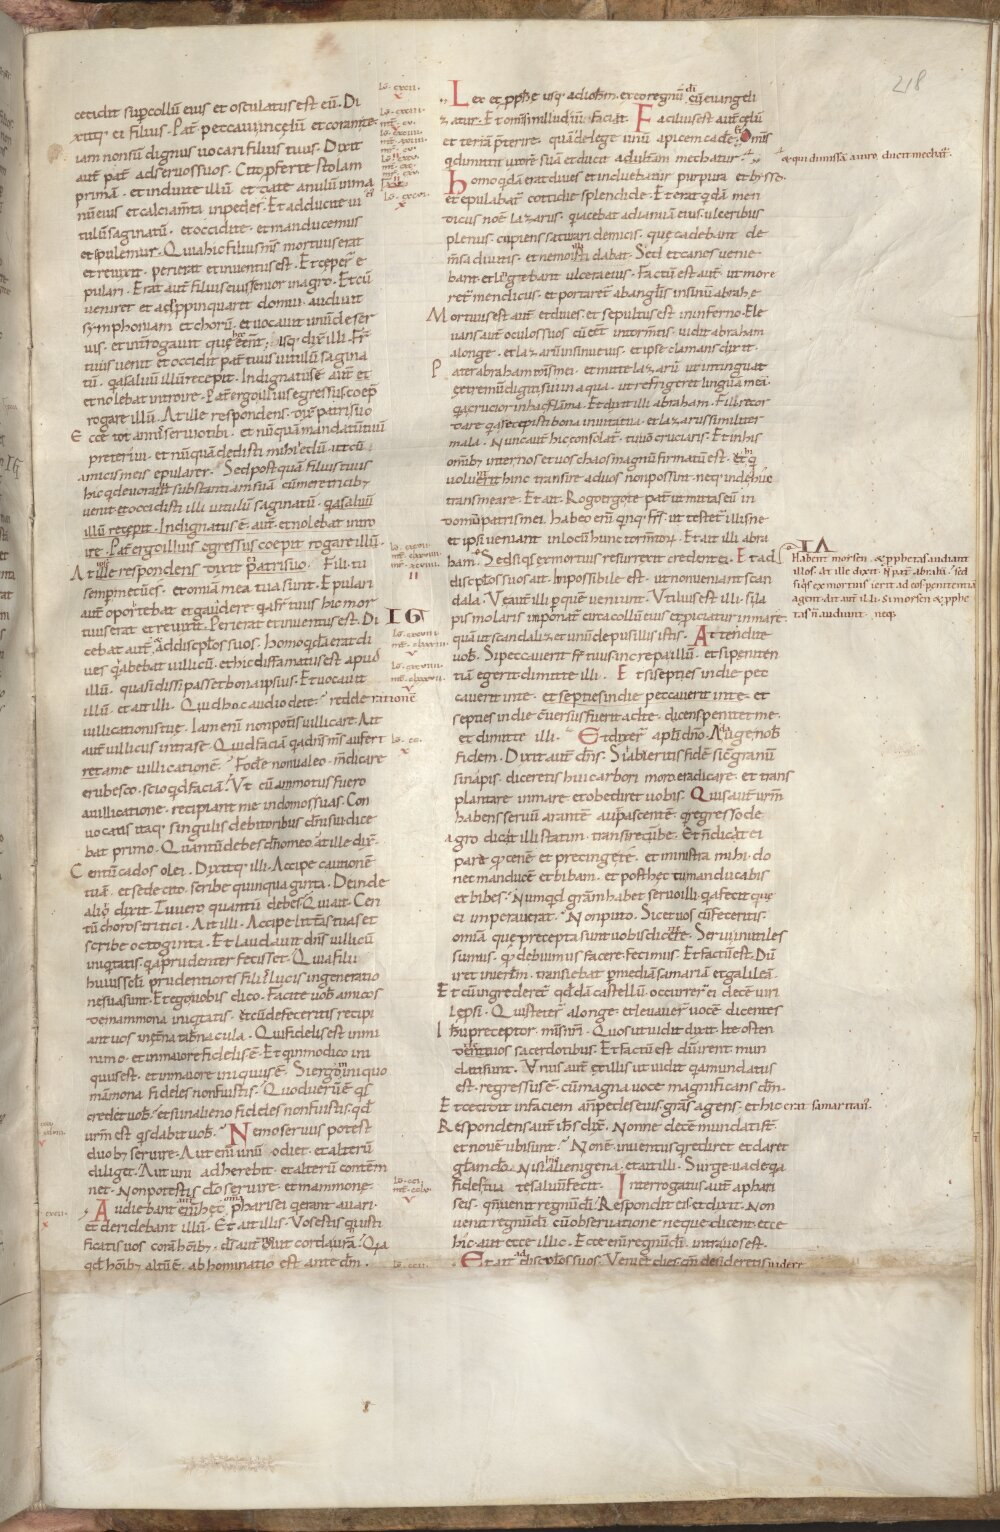 218
cecidit sup collū eius et osculatus est eū. Di
xitq; ei filius. Pat̄ peccavi in celū et coram te.
iam non sū dignus vocari filius tuus. Dixit
aut̄ pat̄ ad servos suos. Cito pferte stolam
primā. et induite illū. et date anulū in ma
nū eius et calciam̄ta in pedes. Et adducite vi
tulū saginatū. et occidite. et manducemus
et epulemur. Quia hic filius m̄s mortuus erat
et revixit. perierat et inventus est. Et cęper̄ e
pulari. Erat aut̄ filius eius senior in agro. Et cū
veniret et adppinquaret domui. audivit
symphoniam et chorū. et vocavit unū de ser
vis. et int̄rogavit quę hęc eēnt. isq; dix̄ illi. Fr̄
tuus venit et occidit pat̄ tuus vitulū sagina
tū. qa salvū illū recepit. Indignatus ē aut̄ et
et nolebat introire. Pat̄ ergo illius egressus coep̄
rogare illū. At ille respondens. dix̄ patri suo
Ecce tot annis servio tibi. et nūquā mandatū tuū
preterivi. et nūquā dedisti mihi edū ut cū
amicis meis epularer. Sed postquā filius tuus
hic q devoravit substantiam suā cū meretricib;
venit et occidisti illi vitulū saginatū. qa salvū
illū recepit. Indignatus ē. aut̄. et nolebat intro
ire. Pat̄ ergo illius egressus coepit rogare illū.
At ille respondens dixit patri suo. Fili tu
semp mecū es. et omīa mea tua sunt. Epulari
aut̄ oportebat et gaudere. qa fr̄ tuus hic mor
tuus erat et revixit. Perierat et inventus est. Di
16
cebat aut̄ & ad discipłos suos. Homo qdā erat di
ves q̄ habebat villicū. et hic diffamatus est apud
illū. quasi dissipasset bona ipsius. Et vocavit
illū. et ait illi. Quid hoc audio de te. redde rationē
villicationis tuę. Iam enī non potis villicare. Ait
aut̄ villicus intra se. Quid faciā qa dn̄s m̄s aufert
re tame villicationē. Fode non valeo. mēdicare
erubesco. scio qd faciā. Ut cū ammotus fuero
a villicatione. recipiant me in domos suas. Con
vocatis itaq; singulis debitoribus dn̄i sui dice
bat primo. Quantū debes dn̄o meo. at ille dix̄.
Centū cados olei. Dixitq; illi. Accipe cautionē
tuā. et sede cito. scribe quinquaginta. Deinde
alio dixit. Tu vero quantū debes. Qui ait. Cen
tū choros tritici. Ait illi. Accipe litt̄as tuas et
scribe octoginta. Et laudavit dn̄s villicū
iniq̄tatis. qa prudenter fecisset. Quia filii
huius sełi prudentiores filiis lucis in generatio
ne sua sunt. Et ego vobis dico. Facite vob̄ amicos
de mammona iniq̄tatis. et cū defeceritis recipi
ant vos in ęt̄na tab̄nacula. Qui fidelis est in mi
nimo. et in maiore fidelis ē. Et qi in modico ini
quus est. et in maiore iniquus ē. Si ergo in iniquo
māmona fideles non fuistis. Quod verū ē qs
credet vob̄. et si in alieno fideles non fuistis. qd
vr̄m est qs dabit vob̄. Nemo servus potest
duob; servire. Aut enī unū odiet. et alterū
diliget. Aut uni adherebit. et alterū contēm
net. Non potestis dō servire et mammonę.
Audiebant aut̄ omīa hęc pharisei q erant avari.
et deridebant illū. Et ait illis. Vos estis qi iusti
ficatis vos corā homīb;. ds̄ aut̄ novit corda vr̄a. Qia
qd homīb; altū ē. abhominatio est ante dm̄.
Lex et ppħe usq; ad ioħem. ex eo regnū di evangeli
zatur. Et omīs in illud vim faciat. Facilius est aut̄ cęlū
et terrā p̄terire. quā de lege unū apicem cadere. Omīs
q dimittit uxorē suā et ducit adult̄am mechatur.
& qui dimissā a viro ducit mechat̄.
Homo qdā erat dives et induebatur purpura et bysso.
et epulabat̄ cottidie splendide. Et erat qdā men
dicus noē lazarus. q iacebat ad ianuā eius ulceribus
plenus. cupiens saturari de micis. quę cadebant de
m̄sa divitis. et nemo illi dabat. Sed et canes venie
bant et lingebant ulcera eius. Factū est aut̄ ut more
ret̄ mendicus et portaret̄ ab angłis in sinū abrahę
Mortuus est aut̄ et dives. et sepultus est in inferno. Ele
vans aut̄ oculos suos cū eēt in torm̄tis. vidit abraham
a longe. et lazarū in sinu eius. et ipse clamans dixit.
Pater abraham mis̄rere mei. et mitte lazarū ut intinguat
extremū digiti sui in aqua. ut refrigeret linguā meā.
qa crucior in hac flāma. Et dixit illi abraham. Fili recor
dare qa recepisti bona in vita tua. et lazarus similiter
mala. Nunc aut̄ hic consolat̄. tu vō cruciaris. Et in his
omīb; inter nos et vos chaos magnū firmatū est. et hi q
voluerint hinc transire ad vos non possint. neq; inde huc
transmeare. Et ait. Rogo ergo te pat̄ ut mittas eū in
domū patris mei. habeo enī qnq; fr̄s. ut testet̄ illis ne
et ipsi veniant in locū hunc torm̄torū. Et ait illi abra
ham. Sed si qs ex mortuis resurrexit credent ei. Et ad
Habent moysen & pphetas audiant
illos. At ille dixit. N̄ pat̄ abrahā. sed
si qs ex mortuis ierit ad eos penitentiā
agent. Ait aut̄ illi. Si moysen & pphe
tas n̄ audiunt. neq;
discipłos suos ait. Impossibile est. ut non veniant scan
dala. Ve aut̄ illi p quē veniunt. Utilius est illi. si la
pis molaris imponat̄ circa collū eius et piciatur in mare.
quā ut scandalizet unū de pusillis istis. Attendite
vob̄. Si peccaverit fr̄ tuus increpa illū. et si peniten
tiā egerit dimitte illi. Et si septies in die pec
caverit in te. et septies in die peccaverit in te. et
septies in die cōversus fuerit ad te. dicens penitet me.
et dimitte illi. Et dixer̄ apłi dn̄o. Adauge nob̄
fidem. Dixit aut̄ dn̄s. Si habueritis fidē sic granū
sinapis. diceretis huic arbori moro. eradicare. et trans
plantare in mare. et obediret vobis. Quis aut̄ vr̄m
habens servū arantē aut pascentē. q regresso de
agro dicat illi statim. transi recūbe. Et n̄ dicat ei
para q cenē et precingere. et ministra mihi. do
nec manducē et bibam. et post hęc tu manducabis
et bibes. Numqd grām habet servo illi. qa fecit quę
ei imperaverat. Non puto. Sic et vos cū feceritis.
omīa quę precepta sunt vobis dicite. Servi inutiles
sumus. qd debuimus facere. fecimus. Et factū est. Dū
iret in ierłm. transiebat p mediā samariā et galileā.
Et cū ingrederet̄ qddā castellū occurrer̄ ei decē viri
lepsi. Qui steter̄ a longe. et levaver̄ vocē dicentes
Iħu preceptor mis̄rere nr̄i. Quos ut vidit dixit. Ite osten
dite vos sacerdotibus. Et factū est dū irent. mun
dati sunt. Unus aut̄ ex illis ut vidit qa mundatus
est. regressus ē. cū magna voce magnificans dm̄.
Et cecidit in faciem an̄ pedes eius. grās agens. et hic erat samaritan'.
Respondens aut̄ iħs dix̄. Nonne decē mundati st̄
et novē ubi sunt. Non ē inventus q rediret et daret
głam dō. nisi hic alienigena. et ait illi. Surge vade qa
fides tua te salvū fecit. Interrogatus aut̄ a phari
seis. qn̄ venit regnū di. Respondit eis. et dixit. Non
venit regnū di cū observatione. neque dicent ecce
hic. aut ecce illic. Ecce enī regnū di. intra vos est.
Et ait ad discipłos suos. Veniet dies qn̄ desideretis videre